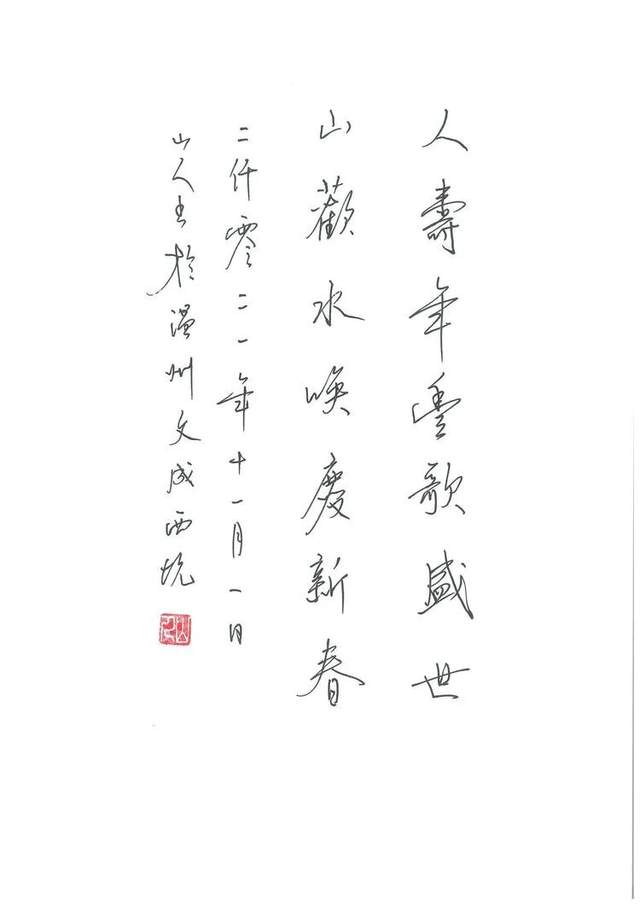 人壽年豐歌盛世
山歡水唤慶新春
二仟零二一年十一月一日
山人书於温州文成西坑